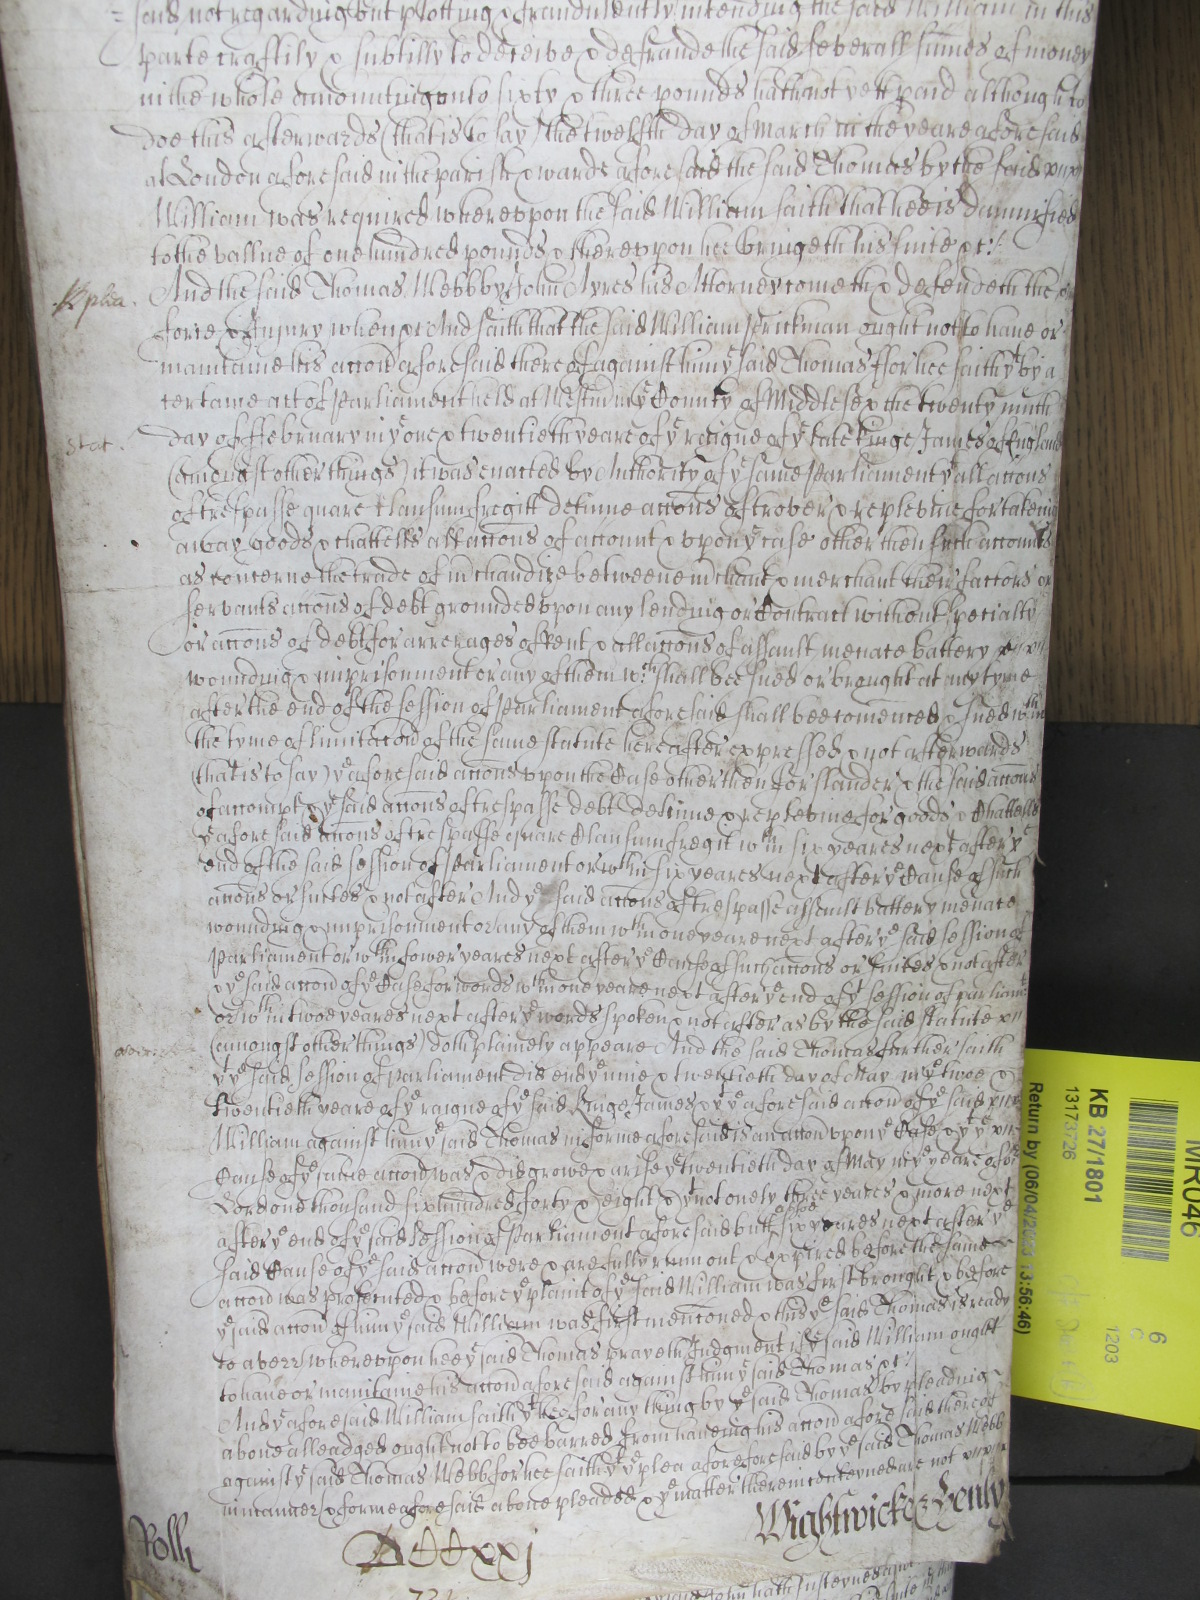 said not regarding but plotting & fraudulently intending the said William in this
parte craftily & subtilly to deceive & defraude the said severall sumes of money
in the whole amounting unto sixty & three pounds hath not yett paid although to
doe this afterwards (that is to say) the twelfth day of March in the yeare aforesaid
at London aforesaid in the parish & warde aforesaid the said Thomas by the said
William was required whereupon the said William saith that hee is damnified
to the vallue of one hundred pounds & thereupon hee bringeth his suite &c:
And the said Thomas Webb by John Ayres his Attorney cometh & defendeth the
force & Injury when &c And saith that the said William Prickman ought not to have or
maintaine his accon aforesaid thereof against him ye said Thomas ffor hee saith yt by a
certaine act of Parliament held at Westm in ye County of Middlesex the twenty ninth
Stat.
day of ffebruary in ye one & twentieth yeare of ye reigne of ye late kinge James of England
(amongst other things) it was enacted by Authority of ye same Parliament yt all accons
of trespasse quare clausum fregitt detinue accons of trover & replevine for takeing
away goods & chattells all accons of account & upon ye case other then such accounts
as concerne the trade of mchandize betweene mchant & merchant their factors or
servants accons of debt grounded upon any lending or Contract without specialty
or accons of debt for arrerages of Rent & all accons of assault menace battery
wounding & imprisonment or any of them wch shall bee sued or brought at any tyme
after the end of the session of Parliament aforesaid shall bee comenced & sued wthin
the tyme of limitacon of the same statute hereafter expressed & not afterwards
(that is to say) ye aforesaid accons upon the Case other then for slander & the said accons
of accompt & ye said accons of trespasse debt detinue & replevine for goods & Chattells
ye aforesaid accons of trespasse quare Clausum fregit wthin six yeares next after ye
end of the said session of Parliament or wthin six yeares next after ye Cause of such
accons or suites & not after And ye said accons of trespasse assault battery menace
wounding & imprisonment or any of them wthin one yeare next after ye said session of
Parliament or wthin fower yeares next after ye Cause of such accons or suites & not after
& ye said accon of ye Case for words wthin one yeare next after ye end of ye session of parliamt
or wthin twoe yeares next after ye words spoken & not after as by the said statute
(amongst other things) doth plainely appeare And the said Thomas further saith
yt ye said session of Parliament did end ye nine & twentieth day of May in ye twoe &
twentieth yeare of ye raigne of ye said Kinge James & yt ye aforesaid accon of ye said
William against him ye said Thomas in forme aforesaid is an accon upon ye Case & yt ye
Cause of ye same accon was & did growe & arise ye twentieth day of May in ye yeare of our
Lord one thousand six hundred forty & eight & yt not onely three yeares & more next
after ye end of ye said session of Parliament aforesaid butt alsoe six yeares next after ye
said Cause of ye said accon were & are fully runn out & expired before the same
accon was prosecuted & before ye plaint of ye said William was first brought & before
ye said accon of him ye said William was first mencioned & this ye said Thomas is ready
to averr whereupon hee ye said Thomas prayeth Judgment if ye said William ought
to have or maintaine his accon aforesaid against him ye said Thomas &c:
And ye aforesaid William saith yt hee for any thing by ye said Thomas by pleading
above alleadged ought not to bee barred from haveing his accon aforesaid thereof
against ye said Thomas Webb for hee saith yt ye plea aforesaid by ye said Thomas Webb
in manner & forme aforesaid above pleaded & ye matter therein conteyned are not
Wightwicke &
Rolle
MR046
KB 27/1801
13173726
Return by (06/04/2023 13:56:46)
6
C
1203